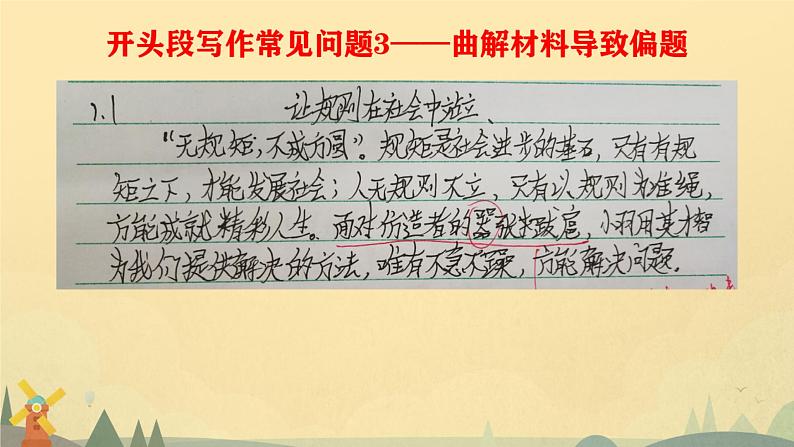 开头段写作常见问题3——曲解材料导致偏题
7.1 让规则在社会中站立、
“无规矩，不成方圆”。规矩是社会进步的基石，只有有规
矩之下，才能发展社会；人无规则不立，只有以规则为准绳，
方能成就精彩人生。面对仿造者的嚣张跋扈，小羽用其才智
为我们提供解决的方法，唯有不急不躁，方能解决问题.